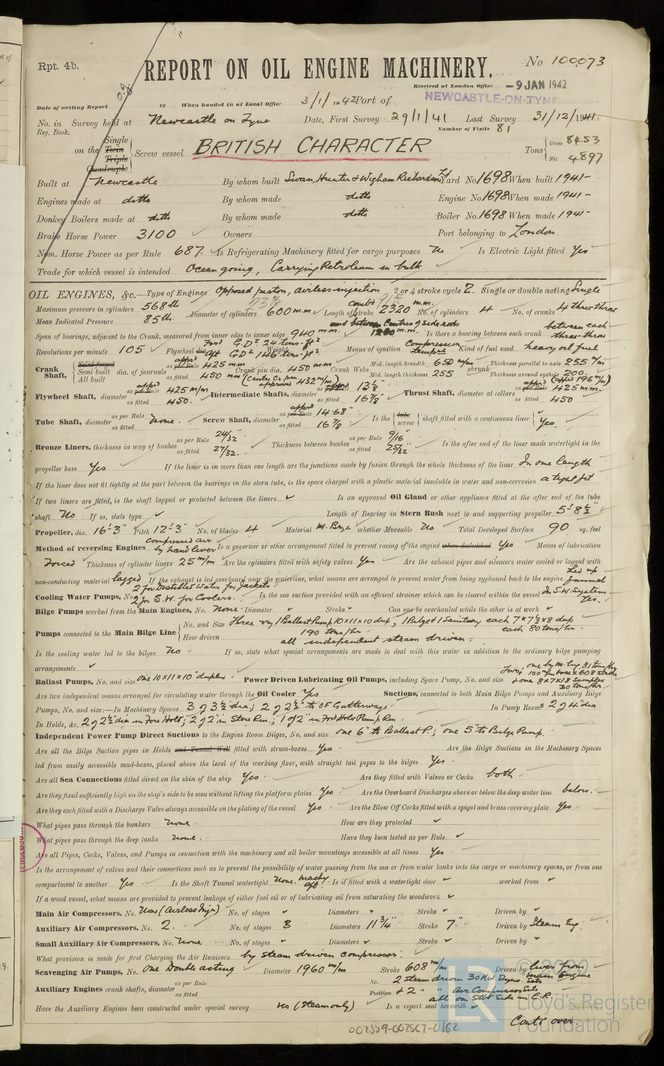 Rpt. 4b.
REPORT ON OIL ENGINE MACHINERY.
No 100,073
Received at London Office - 9 JAN 1942
NEWCASTLE-ON-TYNE
Date of writing Report 19 When handed in at Local Office 3/1/1942 Port of
No. in Survey held at Newcastle on Tyne Date, First Survey 29/1/41 Last Survey 31/12/1941
Reg. Book. Number of Visits 81
on the Single Twin Triple Quadruple Screw vessel BRITISH CHARACTER Tons Gross 8453 Net 4897
Built at Newcastle By whom built Swan, Hunter & Wigham Richardson Ld Yard No 1698 When built 1941
Engines made at ditto By whom made ditto Engine No 1698 When made 1941
Donkey Boilers made at ditto By whom made ditto Boiler No 1698 When made 1941
Brake Horse Power 3100 Owners Port belonging to London
Nom. Horse Power as per Rule 687 Is Refrigerating Machinery fitted for cargo purposes No Is Electric Light fitted Yes
Trade for which vessel is intended Ocean going, Carrying Petroleum in bulk
OIL ENGINES, &c.—Type of Engines Opposed piston, airless injection 2 or 4 stroke cycle 2 Single or double acting Single
Maximum pressure in cylinders 568 lb Diameter of cylinders 600 mm Length of stroke comb 2320 mm No. of cylinders 4 No. of cranks 4 three throw
Mean Indicated Pressure 85 lb
Span of bearings, adjacent to the Crank, measured from inner edge to inner edge 940 mm Is there a bearing between each crank between each three throw
Revolutions per minute 105 Flywheel Means of ignition Compression Kind of fuel used heavy oil fuel
Crank Shaft, Solid forged Semi built All built dia. of journals as fitted 450 mm Crank pin dia. 450 mm Crank Webs Mid. length breadth 650 m/m Thickness parallel to axis 255 m/m
Mid. length thickness 255 shrunk Thickness around eyehole 200
Flywheel Shaft, diameter as fitted 450 Intermediate Shafts, diameter as fitted 16 7/8 Thrust Shaft, diameter at collars as fitted 450
Tube Shaft, diameter as per Rule None as fitted Screw Shaft, diameter 14.68" as fitted 16 7/8 Is the tube screw shaft fitted with a continuous liner Yes
Bronze Liners, thickness in way of bushes as per Rule 24/32" as fitted 27/32 Thickness between bushes as per Rule 9/16" as fitted 25/32" Is the after end of the liner made watertight in the
propeller boss Yes If the liner is in more than one length are the junctions made by fusion through the whole thickness of the liner In one length
If the liner does not fit tightly at the part between the bearings in the stern tube, is the space charged with a plastic material insoluble in water and non-corrosive a tight fit
If two liners are fitted, is the shaft lapped or protected between the liners Is an approved Oil Gland or other appliance fitted at the after end of the tube
shaft No If so, state type Length of Bearing in Stern Bush next to and supporting propeller 5'-8½"
Propeller, dia. 16'-3" Pitch 12'-3" No. of blades 4 Material M. Bze whether Moveable No Total Developed Surface 90 sq. feet
Method of reversing Engines compressed air by hand lever Is a governor or other arrangement fitted to prevent racing of the engine when declutched Yes Means of lubrication
Forced Thickness of cylinder liners 25 m/m Are the cylinders fitted with safety valves Yes Are the exhaust pipes and silencers water cooled or lagged with
non-conducting material lagged If the exhaust is led overboard near the waterline, what means are arranged to prevent water from being syphoned back to the engine led up funnel
Cooling Water Pumps, No. 2 for distilled water for jackets 2 for S.W. for Coolers Is the sea suction provided with an efficient strainer which can be cleared within the vessel on S.W. system Yes
Bilge Pumps worked from the Main Engines, No. None Diameter Stroke Can one be overhauled while the other is at work
Pumps connected to the Main Bilge Line No. and Size Three viz/ Ballast Pump 10x11x10 dup; 1 Bilge 1 Sanitary each 7x7½x8 dup
How driven 190 tons/hr each 80 tons/hr all independent steam driven
Is the cooling water led to the bilges No If so, state what special arrangements are made to deal with this water in addition to the ordinary bilge pumping
arrangements
Ballast Pumps, No. and size one 10x11x10 duplex Power Driven Lubricating Oil Pumps, including Spare Pump, No. and size
Are two independent means arranged for circulating water through the Oil Cooler Yes Suctions, connected to both Main Bilge Pumps and Auxiliary Bilge
Pumps, No. and size:—In Machinery Spaces 3 of 3½ dia; 2 of 2½ to OF Gutterways In Pump Room 2 of 4 dia
In Holds, &c. 2 of 2½ dia in For Hold; 2 of 2 in Store Rm; 1 of 2 in For Hold Pump Rm
Independent Power Pump Direct Suctions to the Engine Room Bilges, No. and size one 6" to Ballast P.; one 5" to Bilge Pump.
Are all the Bilge Suction pipes in Holds and Tunnel Well fitted with strum-boxes Yes Are the Bilge Suctions in the Machinery Spaces
led from easily accessible mud-boxes, placed above the level of the working floor, with straight tail pipes to the bilges Yes
Are all Sea Connections fitted direct on the skin of the ship Yes Are they fitted with Valves or Cocks both
Are they fixed sufficiently high on the ship's side to be seen without lifting the platform plates Yes Are the Overboard Discharges above or below the deep water line below
Are they each fitted with a Discharge Valve always accessible on the plating of the vessel Yes Are the Blow Off Cocks fitted with a spigot and brass covering plate Yes
What pipes pass through the bunkers None How are they protected
What pipes pass through the deep tanks None Have they been tested as per Rule
Are all Pipes, Cocks, Valves, and Pumps in connection with the machinery and all boiler mountings accessible at all times Yes
Is the arrangement of valves and their connections such as to prevent the possibility of water passing from the sea or from water tanks into the cargo or machinery spaces, or from one
compartment to another Yes Is the Shaft Tunnel watertight None. machy aft Is it fitted with a watertight door worked from
If a wood vessel, what means are provided to prevent leakage of either fuel oil or of lubricating oil from saturating the woodwork
Main Air Compressors, No. None (Airless Inj.) No. of stages Diameters Stroke Driven by
Auxiliary Air Compressors, No. 2 No. of stages 3 Diameters 11¾" Stroke 7" Driven by Steam Eng.
Small Auxiliary Air Compressors, No. None No. of stages Diameters Stroke Driven by
What provision is made for first Charging the Air Receivers by steam driven compressor
Scavenging Air Pumps, No. one Double acting Diameter 1960 m/m Stroke 608 m/m Driven by lever from main engine
Auxiliary Engines crank shafts, diameter as per Rule as fitted No. 2 steam driven 30 KW Dyno. Sets
Position + 2 " " Air Compressor Sets all on Stbd side in E.R.
Have the Auxiliary Engines been constructed under special survey No (Steam only) Is a report sent herewith
Contd over
002559-002567-0162
© 2020
Lloyd's Register
Foundation